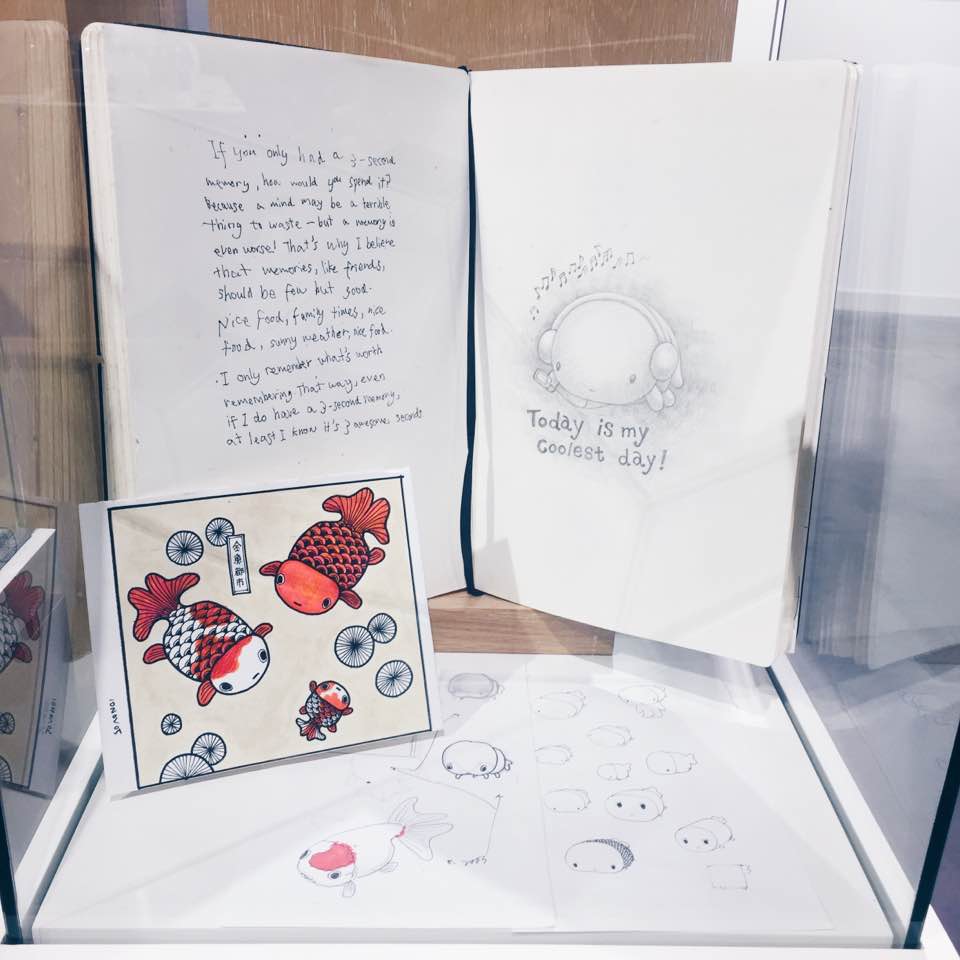 If you only had a 3-second
memory, how would you spend it?
Because a mind may be a terrible
thing to waste – but a memory is
even worse! That's why I believe
that memories, like friends,
should be few but good.
Nice food, family times, nice
food, sunny weather, nice food.
I only remember what's worth
remembering that way, even
if I do have a 3-second memory,
at least I know it's 3 awesome seconds
Today is my
coolest day!
金魚都市